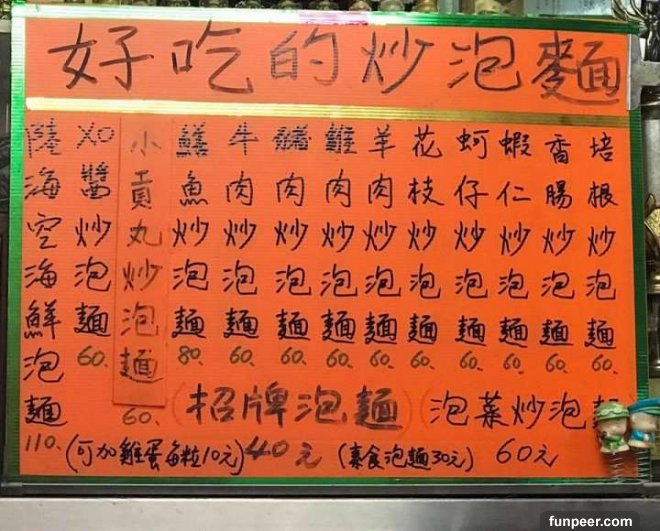 好吃的炒泡麵
培根炒泡麵 60.
香腸炒泡麵 60.
蝦仁炒泡麵 60.
蚵仔炒泡麵 60.
花枝炒泡麵 60.
羊肉炒泡麵 60.
雞肉炒泡麵 60.
豬肉炒泡麵 60.
牛肉炒泡麵 60.
鱔魚炒泡麵 80.
小貢丸炒泡麵 60.
XO醬炒泡麵 60.
陸海空海鮮泡麵 110.
(招牌泡麵) 40元
(可加雞蛋每粒10元)
泡菜炒泡麵 60元
(素食泡麵30元)
funpeer.com